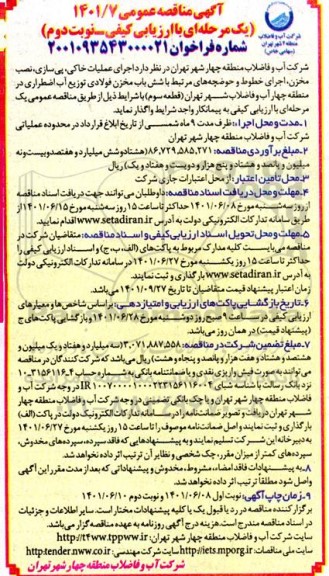 آگهی مناقصه عمومی ۱۴۰۱/۷
(یک مرحله‌ای با ارزیابی کیفی-نوبت دوم)
شماره فراخوان ۲۰۰۱۰۹۳۵۴۳۰۰۰۰۲۱
شرکت آب و فاضلاب
منطقه ۴ شهر تهران
(سهامی خاص)
شرکت آب و فاضلاب منطقه چهار شهر تهران در نظر دارد اجرای عملیات خاکی، پی‌سازی، نصب
مخزن، اجرای خطوط و حوضچه‌های مرتبط با شش باب مخزن فولادی توزیع آب اضطراری در
منطقه چهار آب و فاضلاب شهر تهران (قطعه سوم) با شرایط ذیل از طریق مناقصه عمومی یک
مرحله‌ای با ارزیابی کیفی به پیمانکار واجد شرایط واگذار نماید.
۱-مدت و محل اجرا: ظرف مدت ۹ ماه شمسی از تاریخ ابلاغ قرارداد در محدوده عملیاتی
شرکت آب و فاضلاب منطقه چهار شهر تهران
۲-مبلغ برآوردی مناقصه: ۸۶,۷۲۹,۵۸۵,۲۷۱ (هشتادوشش میلیارد و هفتصدوبیست‌ونه
میلیون و پانصد و هشتاد و پنج هزار و دویست و هفتاد و یک) ریال
۳-محل تأمین اعتبار: از محل اعتبارات جاری شرکت
۴-مهلت و محل دریافت اسناد مناقصه: داوطلبان می‌توانند جهت دریافت اسناد مناقصه
از روز سه‌شنبه مورخ ۱۴۰۱/۰۶/۰۸ حداکثر تا ساعت ۱۵ روز سه‌شنبه مورخ ۱۴۰۱/۰۶/۱۵ از
طریق سامانه تدارکات الکترونیکی دولت به آدرس www.setadiran.ir اقدام نمایند.
۵-مهلت و محل تحویل اسناد ارزیابی کیفی و اسناد مناقصه: متقاضیان شرکت در
مناقصه می‌بایست کلیه مدارک مربوط به پاکت‌های (الف، ب، ج) و اسناد ارزیابی کیفی را
حداکثر تا ساعت ۱۵ روز یکشنبه مورخ ۱۴۰۱/۰۶/۲۷ در سامانه تدارکات الکترونیکی دولت
به آدرس www.setadiran.ir بارگذاری و ثبت نمایند.
زمان اعتبار پیشنهاد قیمت متقاضیان تا تاریخ ۱۴۰۱/۰۹/۲۷ می‌باشد.
۶-تاریخ بازگشایی پاکت‌های ارزیابی و امتیازدهی: براساس شاخص‌ها و معیارهای
ارزیابی کیفی در ساعت ۹ صبح روز دوشنبه مورخ ۱۴۰۱/۰۶/۲۸ و بازگشایی پاکت‌های ج
(پیشنهاد قیمت) در همان روز می‌باشد.
۷-مبلغ تضمین شرکت در مناقصه: ۳,۰۷۱,۸۸۷,۵۵۸ (سه میلیارد و هفتاد و یک میلیون و
هشتصد و هشتاد و هفت هزار و پانصد و پنجاه و هشت) ریال می‌باشد که شرکت‌کنندگان در مناقصه
شهر تهران دریافت و تصویر ضمانت‌نامه را در سامانه تدارکات الکترونیک دولت در پاکت (الف)
بارگذاری و ثبت نمایند و اصل ضمانت‌نامه موصوف را تا ساعت ۱۵ روز یکشنبه مورخ ۱۴۰۱/۰۶/۲۷
به دبیرخانه این شرکت تسلیم نمایند و به پیشنهادهایی که فاقد سپرده، سپرده‌های مخدوش،
سپرده‌های کمتر از میزان مقرر، چک شخصی و نظایر آن ترتیب اثر داده نخواهد شد.
۸-به پیشنهادات فاقد امضاء، مشروط، مخدوش و پیشنهاداتی که بعد از مدت مقرر این آگهی
واصل گردد مطلقاً ترتیب اثر داده نخواهد شد.
۹-زمان چاپ آگهی: نوبت اول ۱۴۰۱/۰۶/۰۸ و نوبت دوم ۱۴۰۱/۰۶/۱۰
برگزارکننده مناقصه در رد یا قبول یک یا کلیه پیشنهادات مختار است. سایر اطلاعات و جزئیات
در اسناد مناقصه مندرج است. هزینه درج آگهی روزنامه به عهده مناقصه‌گزار می‌باشد.
سایت شرکت آب و فاضلاب منطقه چهار شهر تهران: http://t4ww.tpww.ir
سایت ملی مناقصات: http://iets.mporg.ir سایت شرکت مهندسی: http://tender.nww.co.ir
شرکت آب و فاضلاب منطقه چهار شهر تهران